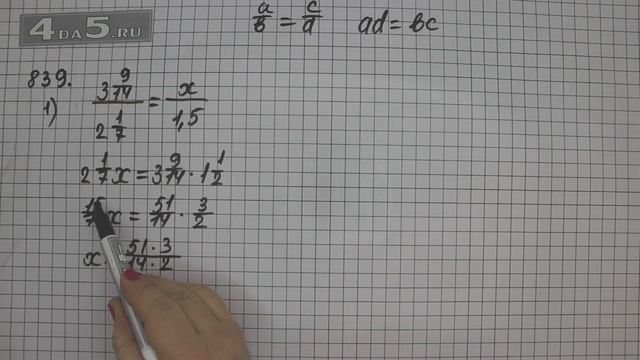 4DA5.RU
a/b = c/d   ad = bc
839.
1) (3 9/14)/(2 1/7) = x/1,5
2 1/7 x = 3 9/14 · 1 1/2
15/7 x = 51/14 · 3/2
x 51·3/14·2